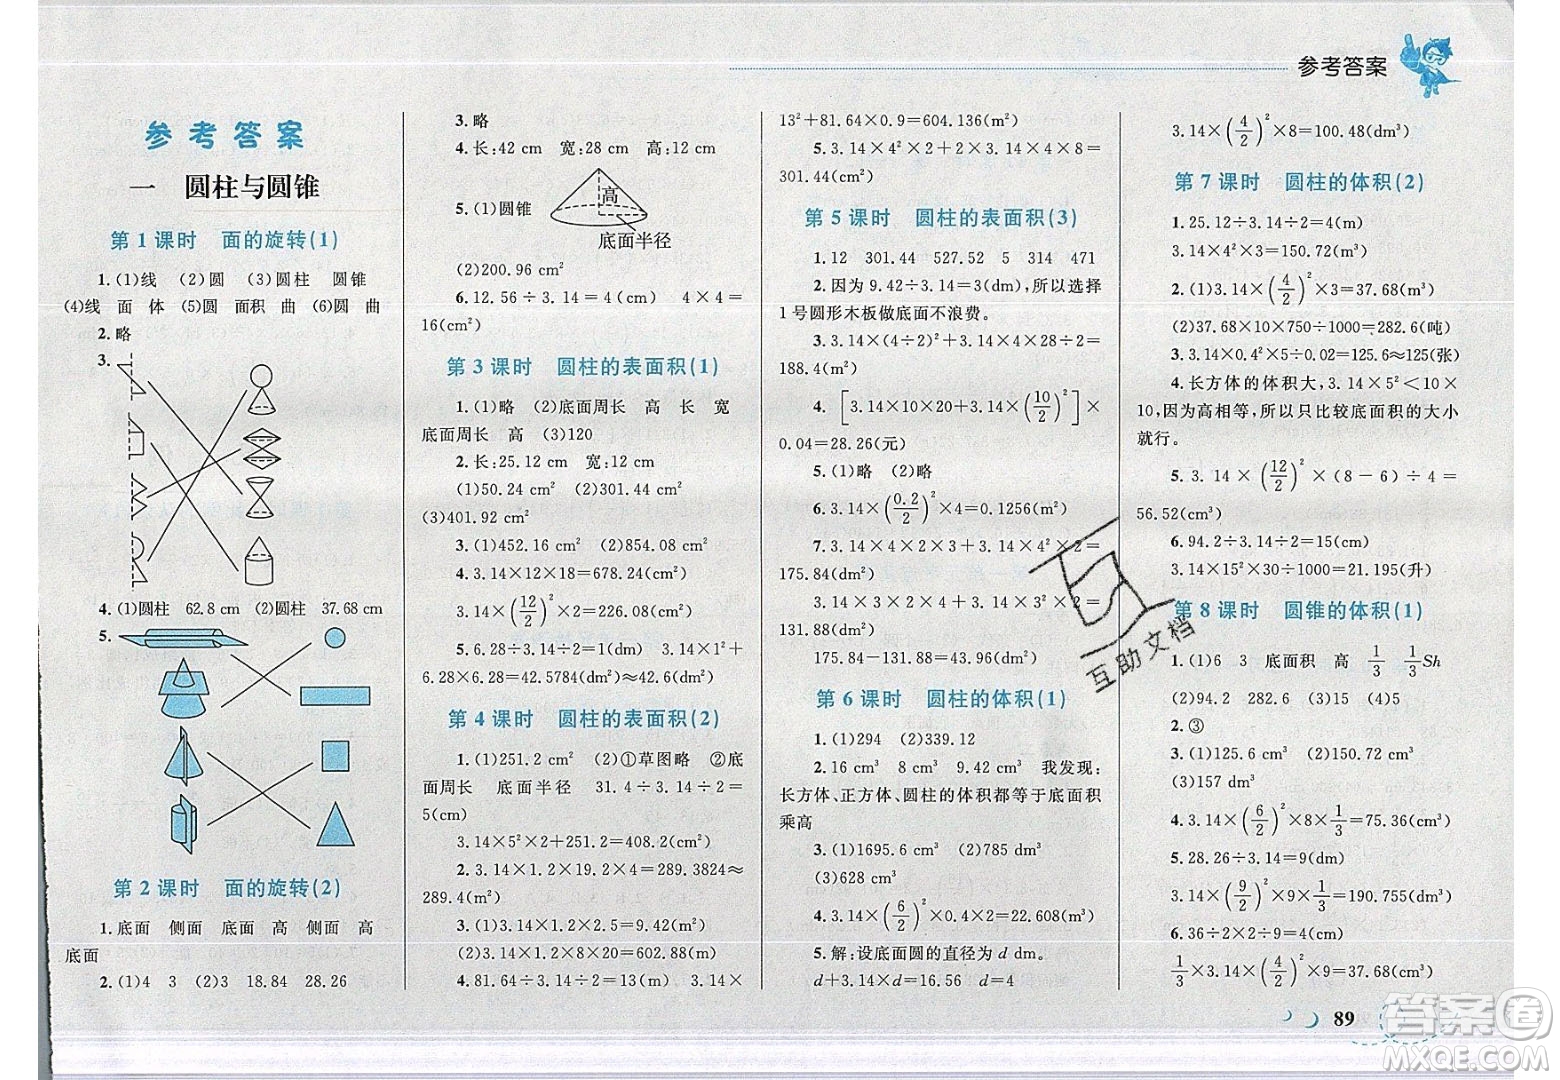 参考答案
参考答案
一 圆柱与圆锥
第 1 课时 面的旋转(1)
1.(1)线 (2)圆 (3)圆柱 圆锥
(4)线 面 体 (5)圆 面积 曲 (6)圆 曲
2.略
3.
4.(1)圆柱 62.8 cm (2)圆柱 37.68 cm
5.
第 2 课时 面的旋转(2)
1.底面 侧面 底面 高 侧面 高
底面
2.(1)4 3 (2)3 18.84 28.26
3.略
4.长:42 cm 宽:28 cm 高:12 cm
5.(1)圆锥
高
底面半径
(2)200.96 cm²
6.12.56÷3.14=4(cm) 4×4=
16(cm²)
第 3 课时 圆柱的表面积(1)
1.(1)略 (2)底面周长 高 长 宽
底面周长 高 (3)120
2.长:25.12 cm 宽:12 cm
(1)50.24 cm² (2)301.44 cm²
(3)401.92 cm²
3.(1)452.16 cm² (2)854.08 cm²
4.3.14×12×18=678.24(cm²)
3.14×(12/2)²×2=226.08(cm²)
5.6.28÷3.14÷2=1(dm) 3.14×1²+
6.28×6.28=42.5784(dm²)≈42.6(dm²)
第 4 课时 圆柱的表面积(2)
1.(1)251.2 cm² (2)①草图略 ②底
面周长 底面半径 31.4÷3.14÷2=
5(cm)
3.14×5²×2+251.2=408.2(cm²)
2.3.14×1.2×19.2×4=289.3824(m²)≈
289.4(m²)
3.(1)3.14×1.2×2.5=9.42(m²)
(2)3.14×1.2×8×20=602.88(m²)
4.81.64÷3.14÷2=13(m) 3.14×
13²+81.64×0.9=604.136(m²)
5.3.14×4²×2+2×4×3.14×8=
301.44(cm²)
第 5 课时 圆柱的表面积(3)
1.12 301.44 527.52 5 314 471
2.因为 9.42÷3.14=3(dm),所以选择
1号圆形木板做底面不浪费。
3.3.14×(4÷2)²+3.14×4×28÷2=
188.4(m²)
4.[3.14×10×20+3.14×(10/2)²]×
0.04=28.26(元)
5.(1)略 (2)略
6.3.14×(0.2/2)²×4=0.1256(m²)
7.3.14×4×4×2+3.14×4×3×2=
175.84(dm²)
3.14×3×4×2+3.14×3×3×2=
131.88(dm²)
175.84-131.88=43.96(dm²)
第 6 课时 圆柱的体积(1)
1.(1)294 (2)339.12
2.16 cm³ 8 cm³ 9.42 cm³ 我发现:
长方体、正方体、圆柱的体积都等于底面积
乘高
3.(1)1695.6 cm³ (2)785 cm³
(3)628 cm³
4.3.14×(6/2)²×0.4×2=22.608(m³)
5.解:设底面圆的直径为 d dm。
d+3.14×d=16.56 d=4
3.14×(4/2)²×8=100.48(dm³)
第 7 课时 圆柱的体积(2)
1.25.12÷3.14÷2=4(m)
3.14×4²×3=150.72(m³)
2.(1)3.14×(4/2)²×3=37.68(m³)
(2)37.68×10×750÷1000=282.6(吨)
3.3.14×0.4²×5÷0.02=125.6≈125(张)
4.长方体的体积大,3.14×5²<10×
10,因为高相等,所以只比较底面积的大小
就行。
5.3.14×(12/2)²×(8-6)÷4=
56.52(cm³)
6.94.2÷3.14÷2=15(cm)
3.14×15²×30÷1000=21.195(升)
第 8 课时 圆锥的体积(1)
1.(1)6 3 底面积 高 1/3 1/3Sh
(2)94.2 282.6 (3)15 (4)5
2.③
3.(1)125.6 cm³ (2)150.72 cm³
(3)157 dm³
4.3.14×(6/2)²×8×1/3=75.36(cm³)
5.28.26÷3.14=9(dm)
3.14×(9/2)²×9×1/3=190.755(dm³)
6.36÷2×2÷4=9(cm)
1/3×3.14×(4/2)²×9=37.68(cm³)
89
互助文档
答案圈
MXQE.COM